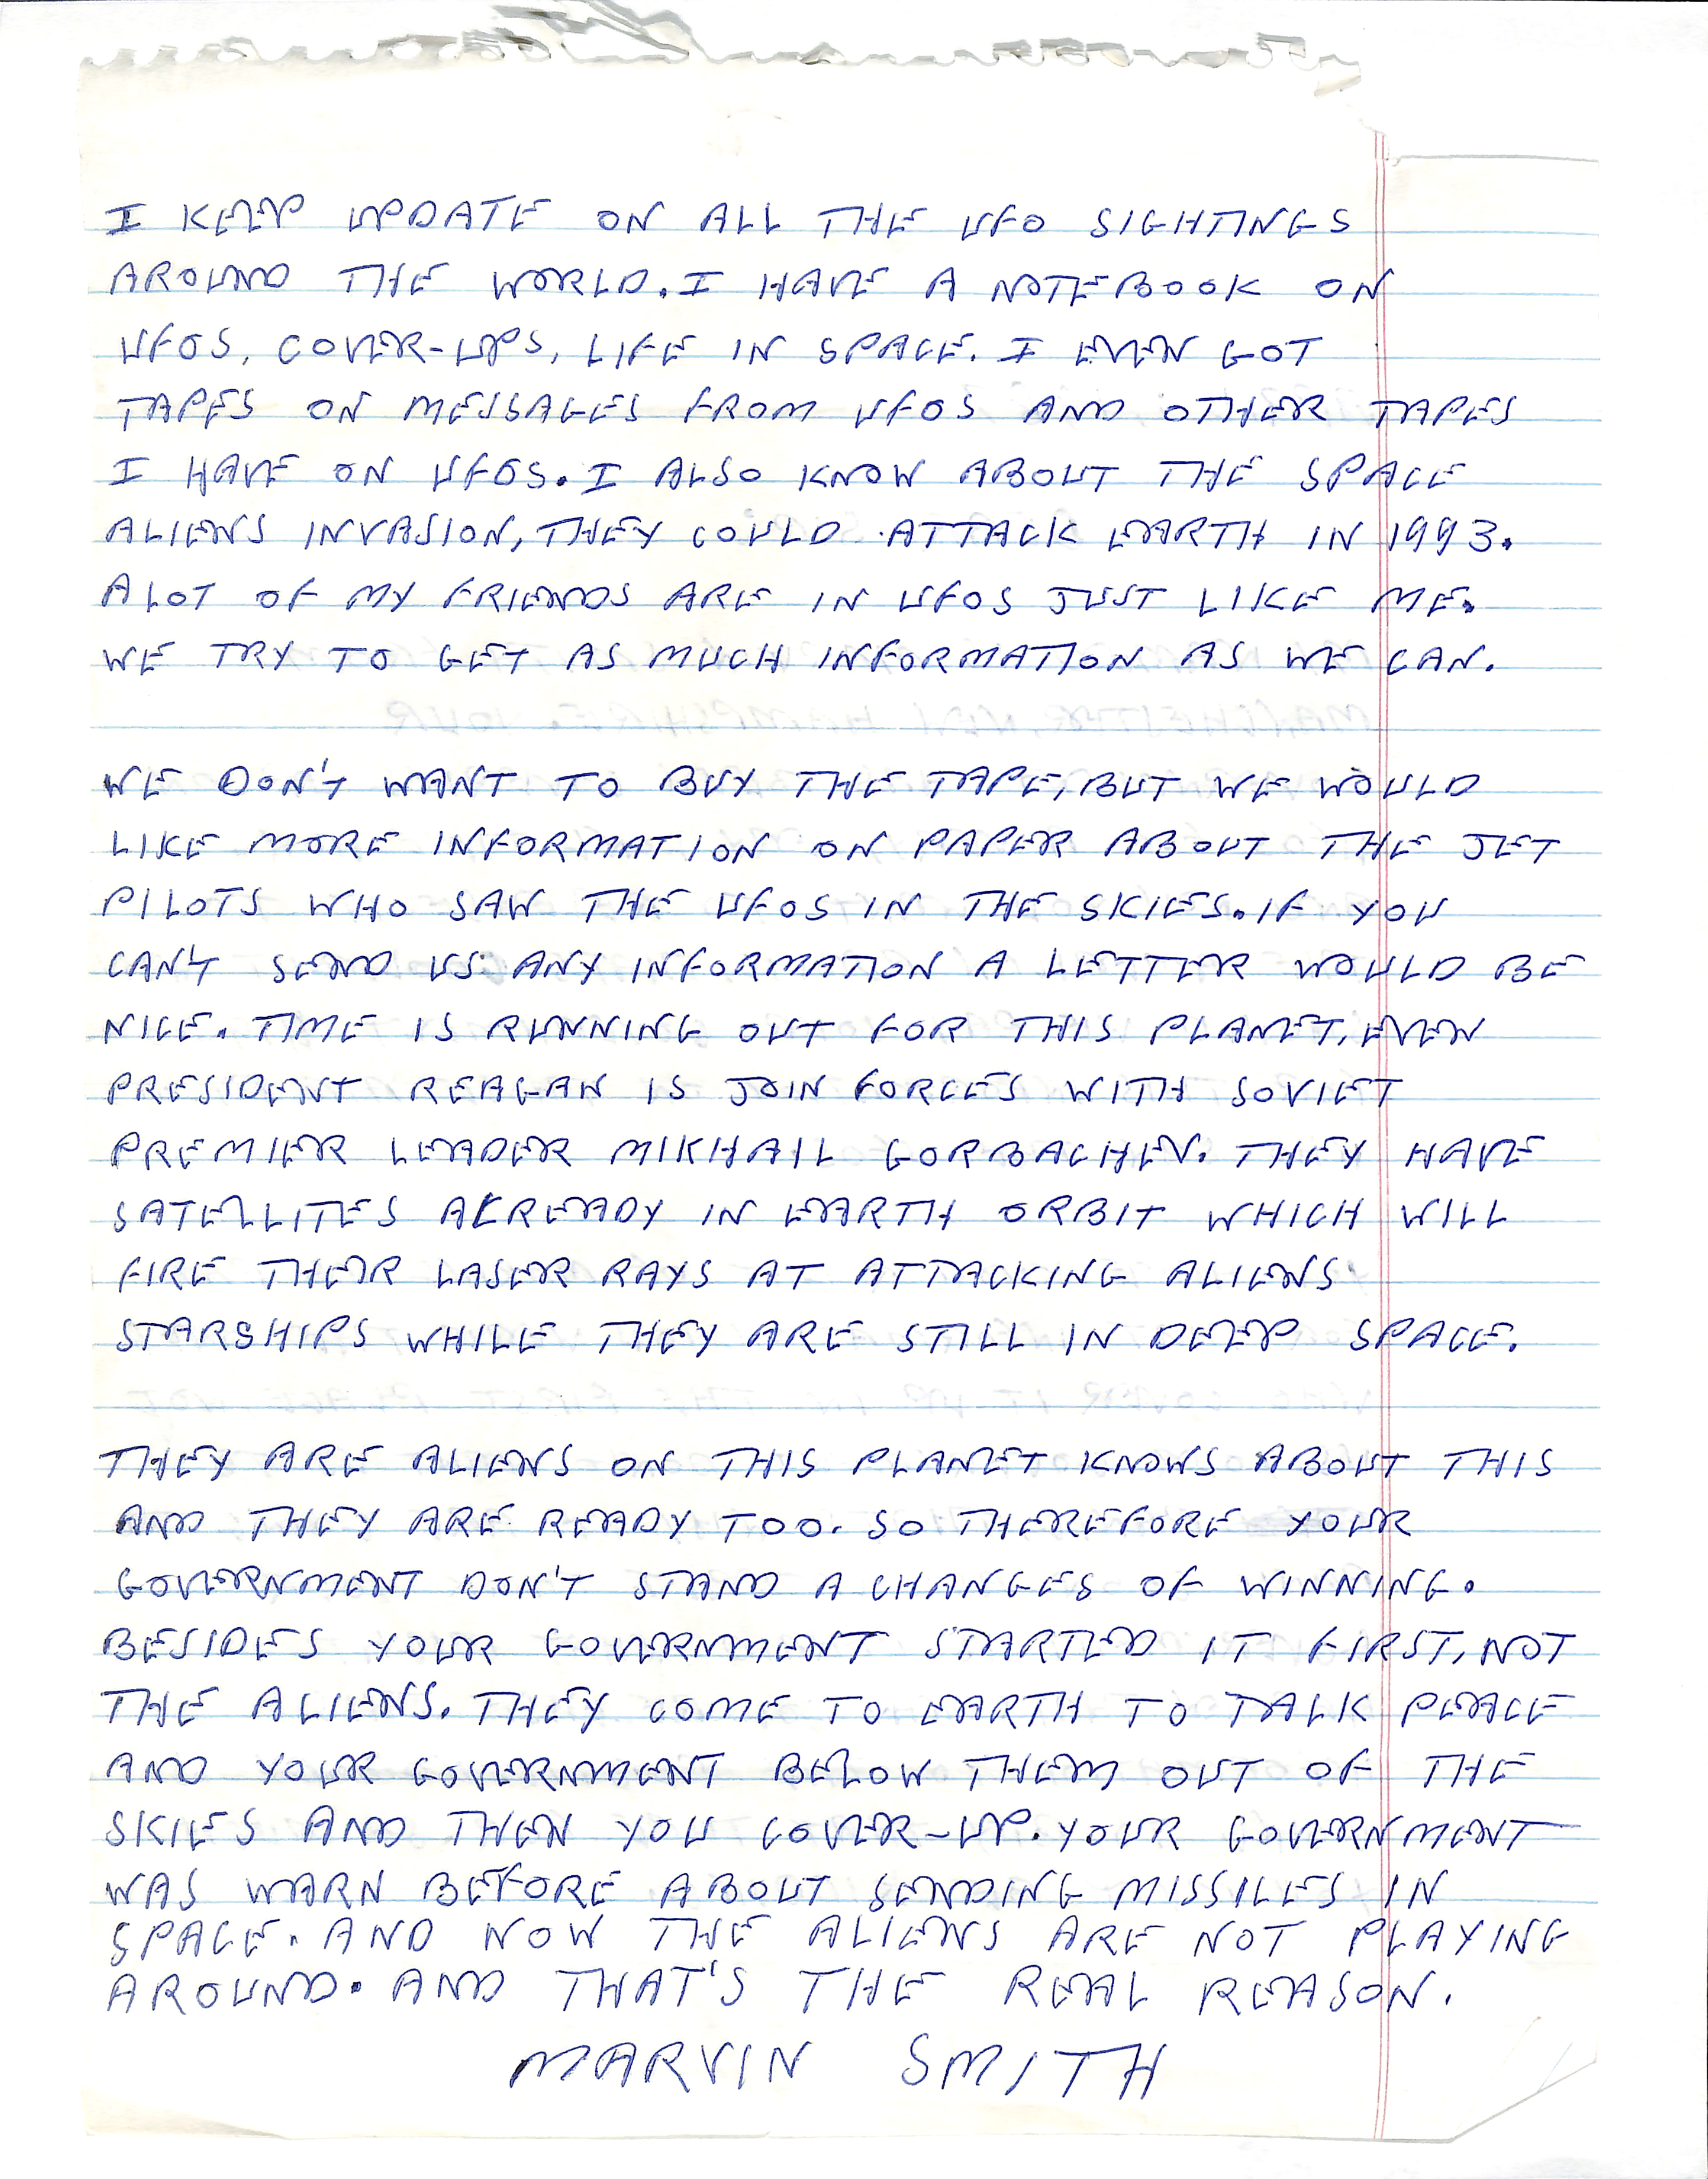 I KEEP UPDATE ON ALL THE UFO SIGHTINGS
AROUND THE WORLD. I HAVE A NOTEBOOK ON
UFOS, COVER-UPS, LIFE IN SPACE. I EVEN GOT
TAPES ON MESSAGES FROM UFOS AND OTHER TAPES
I HAVE ON UFOS. I ALSO KNOW ABOUT THE SPACE
ALIENS INVASION, THEY COULD ATTACK EARTH IN 1993.
A LOT OF MY FRIENDS ARE IN UFOS JUST LIKE ME.
WE TRY TO GET AS MUCH INFORMATION AS WE CAN.
WE DON'T WANT TO BUY THE TAPE, BUT WE WOULD
LIKE MORE INFORMATION ON PAPER ABOUT THE JET
PILOTS WHO SAW THE UFOS IN THE SKIES. IF YOU
CAN'T SEND US ANY INFORMATION A LETTER WOULD BE
NICE. TIME IS RUNNING OUT FOR THIS PLANET, EVEN
PRESIDENT REAGAN IS JOIN FORCES WITH SOVIET
PREMIER LEADER MIKHAIL GORBACHEV. THEY HAVE
SATELLITES ALREADY IN EARTH ORBIT WHICH WILL
FIRE THEIR LASER RAYS AT ATTACKING ALIENS
STARSHIPS WHILE THEY ARE STILL IN DEEP SPACE.
THEY ARE ALIENS ON THIS PLANET KNOWS ABOUT THIS
AND THEY ARE READY TOO. SO THEREFORE YOUR
GOVERNMENT DON'T STAND A CHANGES OF WINNING.
BESIDES YOUR GOVERNMENT STARTED IT FIRST, NOT
THE ALIENS. THEY COME TO EARTH TO TALK PEACE
AND YOUR GOVERNMENT BELOW THEM OUT OF THE
SKIES AND THEN YOU COVER-UP. YOUR GOVERNMENT
WAS WARN BEFORE ABOUT SENDING MISSILES IN
SPACE. AND NOW THE ALIENS ARE NOT PLAYING
AROUND. AND THAT'S THE REAL REASON.
MARVIN SMITH